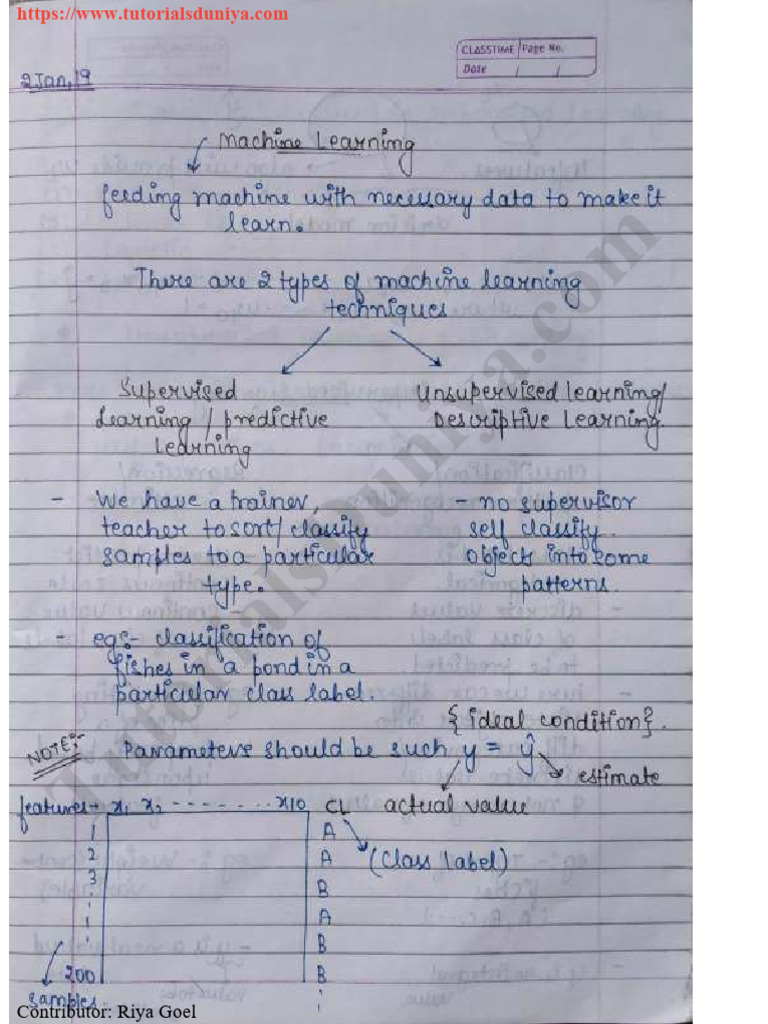 https://www.tutorialsduniya.com
CLASSTIME Page No.
Date / /
2 Jan, 19
Machine Learning
feeding machine with necessary data to make it
learn.
There are 2 types of machine learning
techniques
Supervised
Learning / predictive
Learning
Unsupervised learning/
Descriptive Learning
- We have a trainer,
teacher to sort/classify
samples to a particular
type.
- no supervisor
self classify
objects into some
patterns.
- eg:- classification of
fishes in a pond in a
particular class label.
{ideal condition}.
NOTE:- Parameters should be such y = ŷ
estimate
actual value
features→ x₁ x₂ - - - - - - - x10 CL
(Class Label)
1 A
2 A
3 B
A
B
200 B
samples
TutorialsDuniya.com
Contributor: Riya Goel